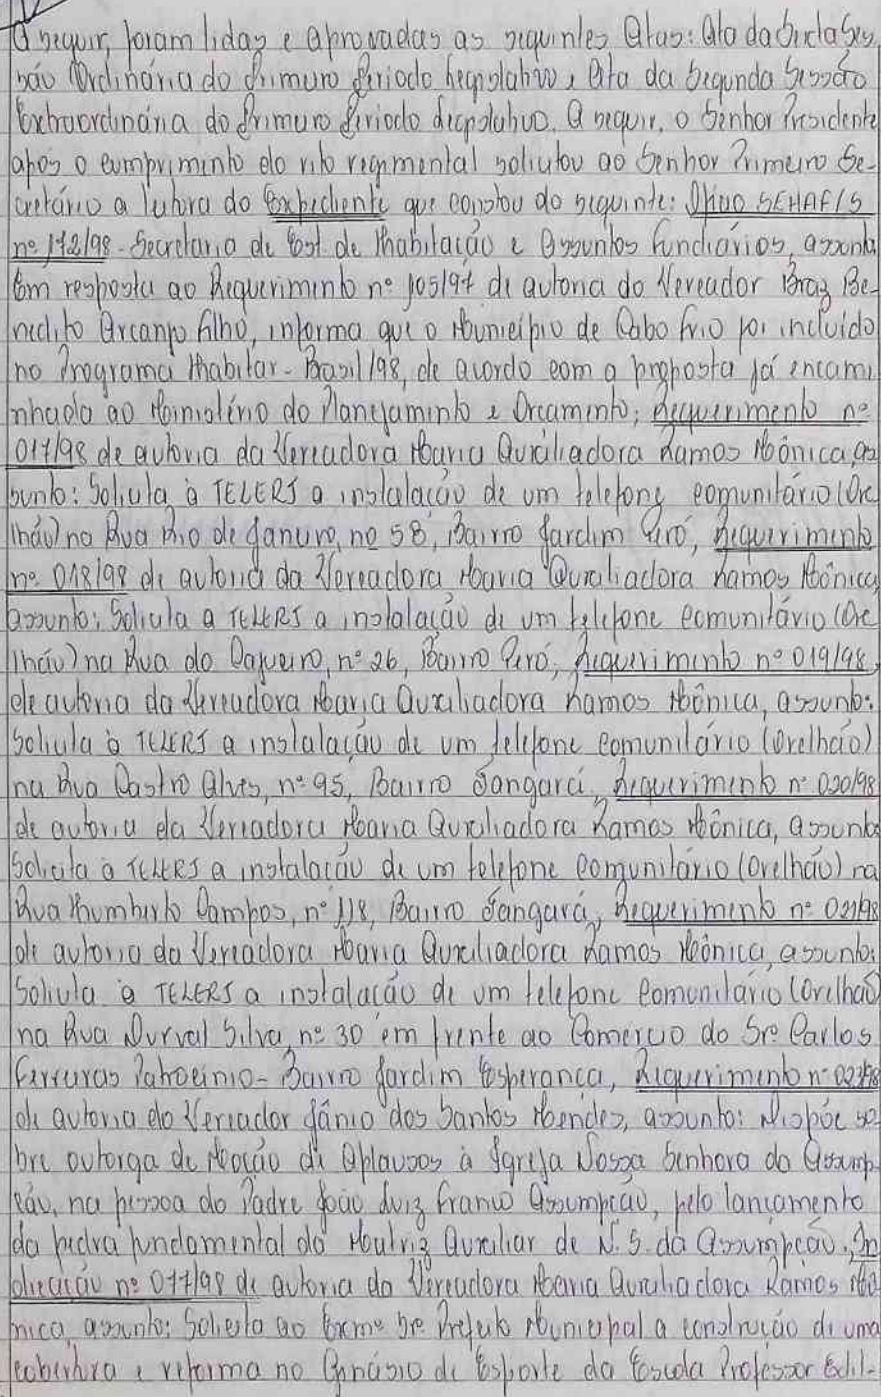 A seguir, foram lidas e aprovadas as seguintes Atas: Ata da Sexta Ses-
são Ordinária do Primeiro Período Legislativo e Ata da Segunda Sessão
Extraordinária do Primeiro Período Legislativo. A seguir, o Senhor Presidente
após o cumprimento do rito regimental solicitou ao Senhor Primeiro Se-
cretário a leitura do Expediente que constou do seguinte: Ofício SEHAF/S
nº 172/98 - Secretaria de Est. de Habitação e Assuntos Fundiários, assunto
Em resposta ao Requerimento nº 105/97 de autoria do Vereador Braz Be-
nedito Arcanjo Filho, informa que o Município de Cabo Frio foi incluído
no Programa Habitar - Brasil/98, de acordo com a proposta já encami
nhada ao Ministério do Planejamento e Orçamento; Requerimento nº
017/98 de autoria da Vereadora Maria Auxiliadora Ramos Mônica, as
sunto: Solicita à TELERJ a instalação de um telefone comunitário (Ore
lhão) na Rua Rio de Janeiro, nº 58, Bairro Jardim Peró, Requerimento
nº 018/98 de autoria da Vereadora Maria Auxiliadora Ramos Mônica,
assunto: Solicita a TELERJ a instalação de um telefone comunitário (Ore
lhão) na Rua do Cajueiro, nº 26, Bairro Peró, Requerimento nº 019/98,
de autoria da Vereadora Maria Auxiliadora Ramos Mônica, assunto:
Solicita à TELERJ a instalação de um telefone comunitário (Orelhão)
na Rua Castro Alves, nº 95, Bairro Jangará, Requerimento nº 020/98
de autoria da Vereadora Maria Auxiliadora Ramos Mônica, assunto
Solicita à TELERJ a instalação de um telefone comunitário (Orelhão) na
Rua Humberto Campos, nº 118, Bairro Jangará, Requerimento nº 021/98
de autoria da Vereadora Maria Auxiliadora Ramos Mônica, assunto:
Solicita à TELERJ a instalação de um telefone comunitário (Orelhão)
na Rua Durval Silva, nº 30 em frente ao Comercio do Srº Carlos
Ferreiras Patrocinio - Bairro Jardim Esperança, Requerimento nº 022/98
de autoria do Vereador Jânio dos Santos Mendes, assunto: Dispõe so
bre outorga de Moção de Aplausos à Igreja Nossa Senhora da Assump-
ção, na pessoa do Padre João Luiz Franco Assumpção, pelo lançamento
da pedra fundamental da Matriz Auxiliar de N. S. da Assumpção. In
dicação nº 077/98 de autoria da Vereadora Maria Auxiliadora Ramos Mô
nica, assunto: Solicita ao Exmº Srº Prefeito Municipal a construção de uma
cobertura e reforma no Ginásio de Esporte da Escola Professor Edil-